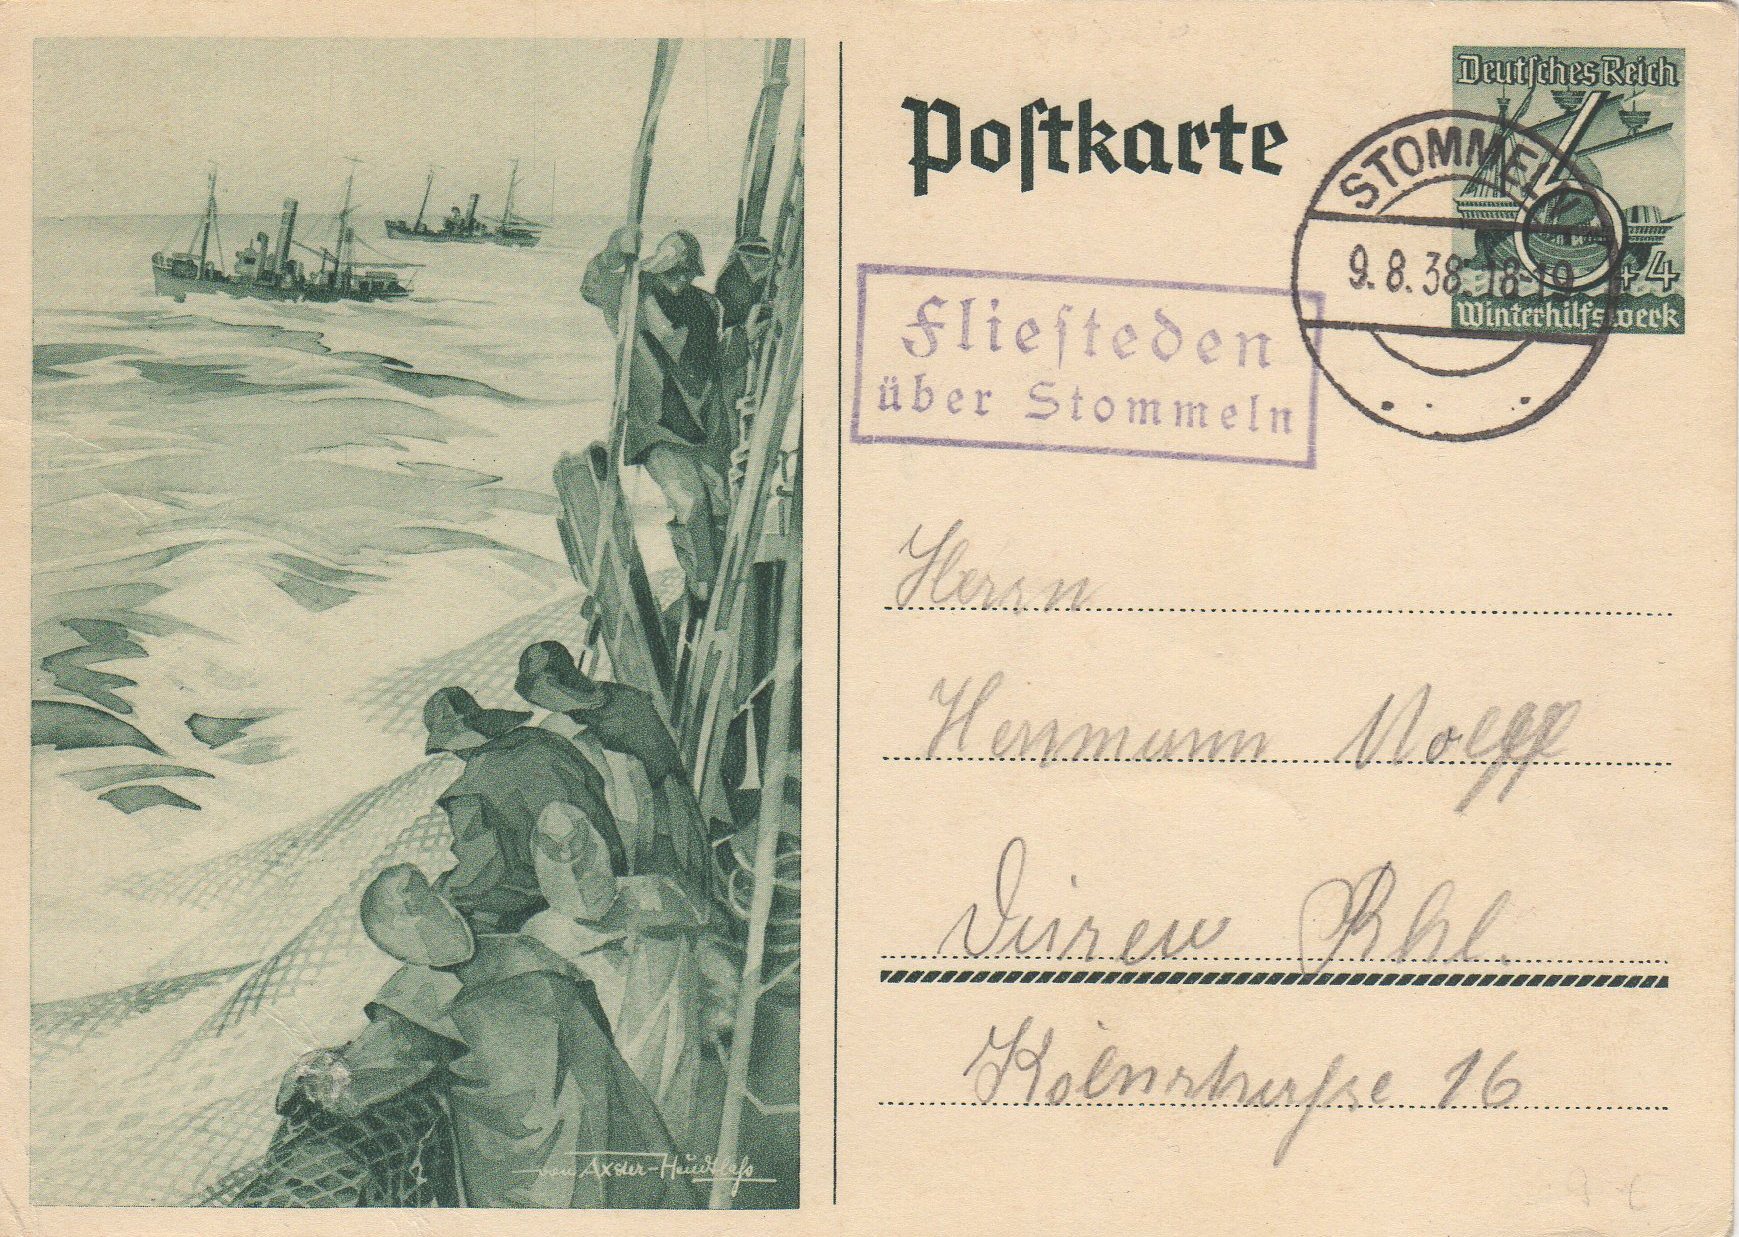 Postkarte
Deutsches Reich
6
+4
Winterhilfswerk
STOMMELN
9.8.38.18-19
Fliesteden
über Stommeln
Herrn
Hermann
Düren Rhl.
Kölnstrasse 16
von Axster-Heudtlaß